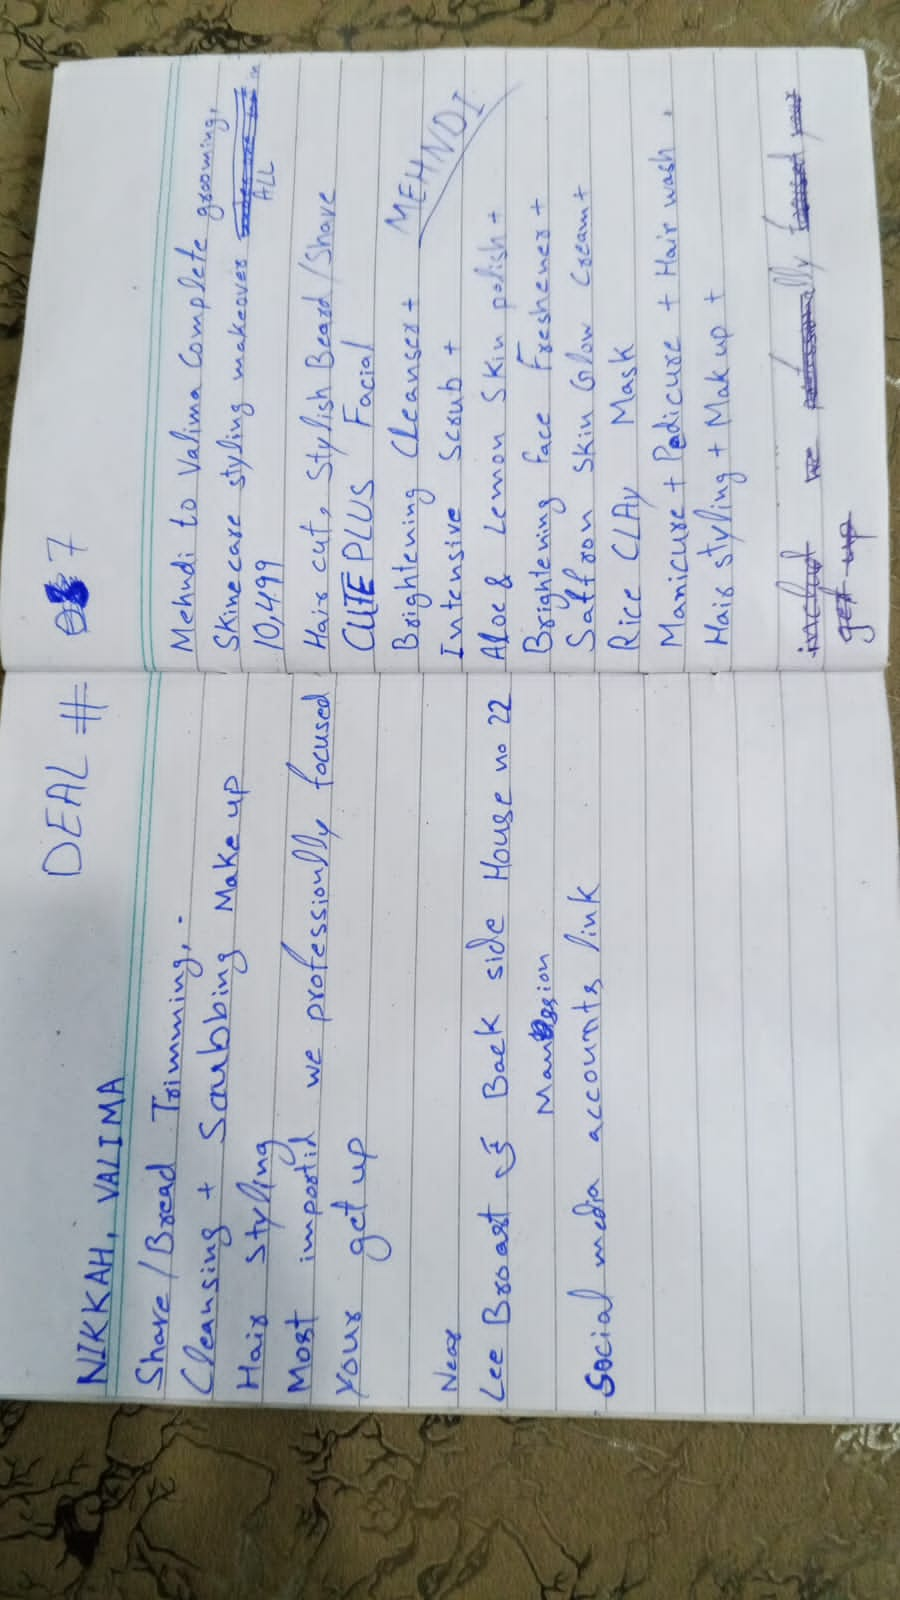 DEAL # 7
NIKKAH, VALIMA
Shave/Bread Trimming,
Cleansing + Scrubbing Make up
Hair styling
Most importid we professionally focused
Your get up
Near
Lee Broast Back side House no 22
Mansion
Social media accounts link
Mehndi to Valima Complete grooming,
Skinecare styling makeover ALL in
10,499
Hair cut, Stylish Beard/Shave
CUTE PLUS Facial
MEHNDI
Brightening Cleanser +
Intensive Scrub +
Aloe & Lemon Skin polish +
Brightening Face Freshener +
Saffron Skin Glow cream +
Rice CLAy Mask
Manicure + Pedicure + Hair wash,
Hair styling + Makeup +
we professionally focused your
get up